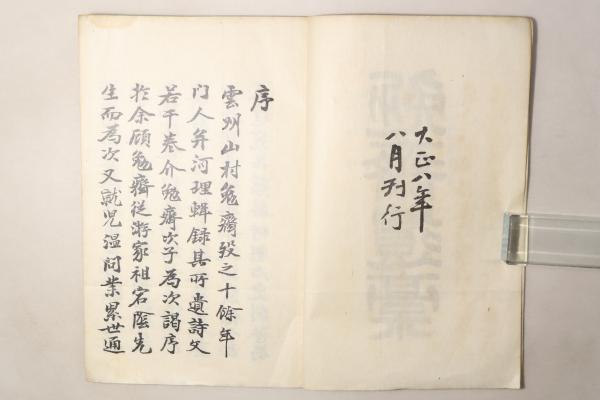 大正八年
八月刊行
序
雲州山村勉齋歿之十餘年
门人并河理輯録其所遺詩文
若干巻介勉齋次子為次謁序
於余顧勉齋從游家祖宕陰先
生而為次又就児温问業累世通